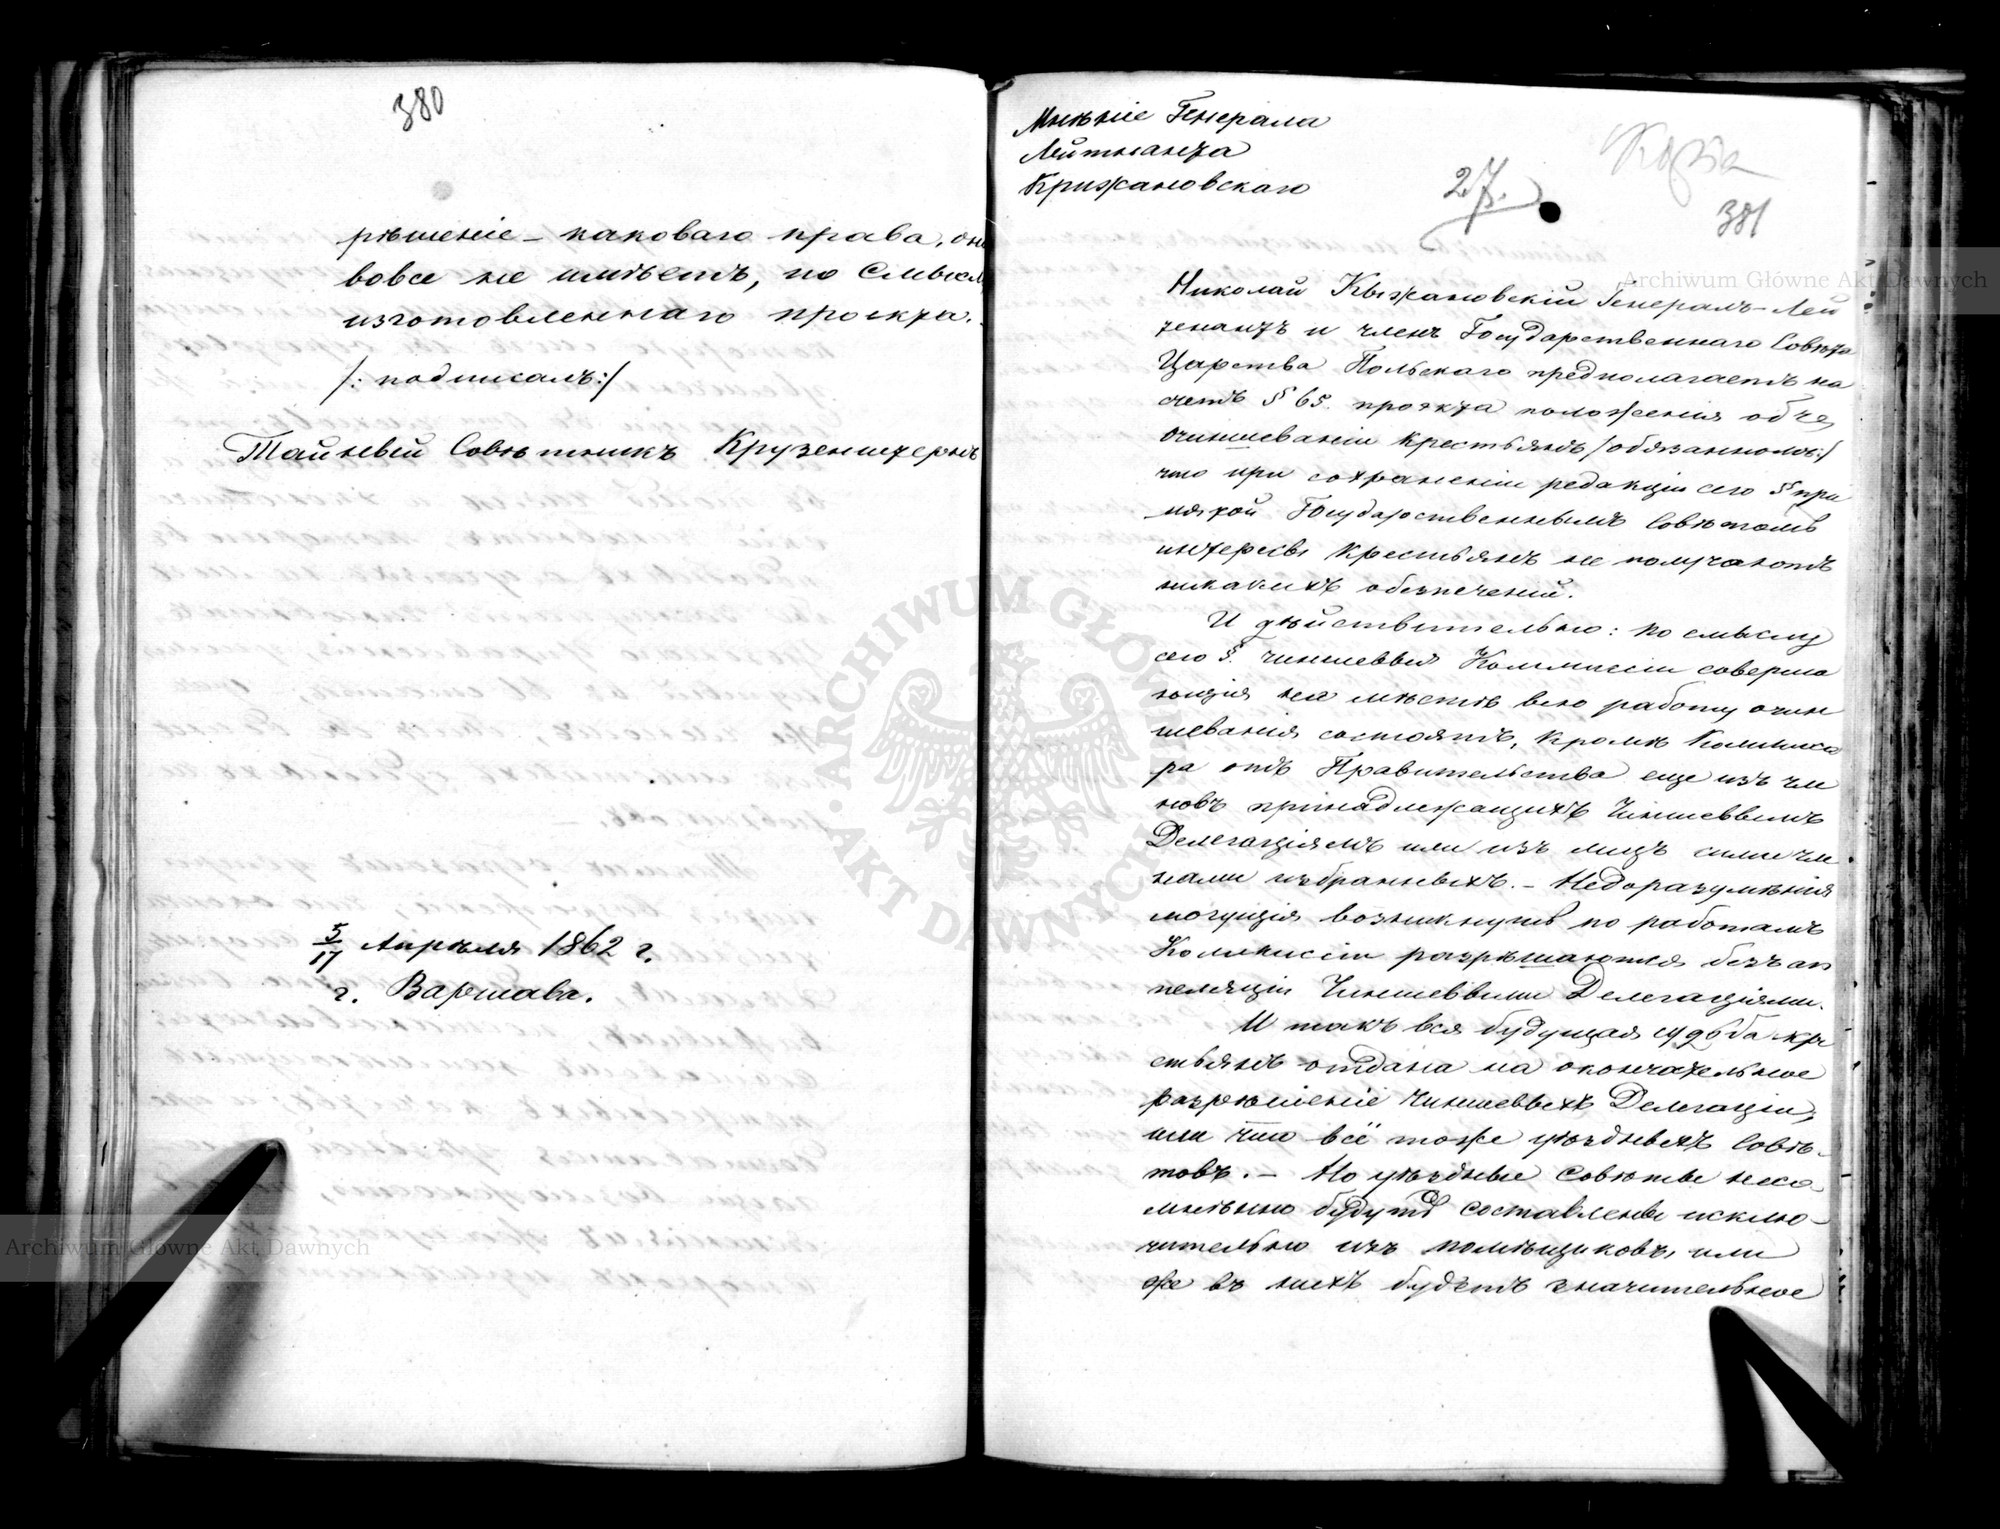 380
рѣшеніе – каковаго права, они
вовсе не имѣетъ, по смыслу
изготовленнаго проекта.
/: подписалъ:/
Тайный Совѣтникъ Крузенштернъ
5/17 Апрѣля 1862 г.
г. Варшава.
Мнѣніе Генерала
Лейтнанта
Крижановскаго
27.
Копія
381
Николай Крыжановскій Генералъ-Лей
тенантъ и членъ Государственнаго Совѣта
Царства Польскаго предполагаетъ на
счетъ § 65. проэкта положенія объ
очиншеваніи крестьянъ /обязанномъ:/
что при сохраненіи редакціи сего § при
нятой Государственнымъ Совѣтомъ
интересы крестьянъ не получаютъ
никакихъ обезпеченій.
И дѣйствительно: по смыслу
сего §. чиншеввыя Коммисіи соверша
ющія на мѣстѣ всю работу очин
шеванія состоятъ, кромѣ Коммиса
ра отъ Правительства еще изъ чле
новъ принадлежащихъ Чиншеввымъ
Делегаціямъ или изъ лицъ сими чле
нами избранныхъ. – Недоразумѣнія
могущія возникнуть по работамъ
Коммисіи разрѣшаются безъ ап
пеляціи Чиншеввыми Делегаціями.
И такъ вся будущая судьба кре
стьянъ отдана на окончательное
разрѣшеніе Чиншеввыхъ Делегаціи,
или что всё тоже уѣздныхъ Совѣ-
товъ. – Но уѣздные Совѣты несо-
мнѣнно будутъ составлены исклю-
чительно изъ помѣщиковъ, или
же въ нихъ будетъ значительное
Archiwum Główne Akt Dawnych
Archiwum Główne Akt Dawnych
ARCHIWUM GŁÓWNE AKT DAWNYCH